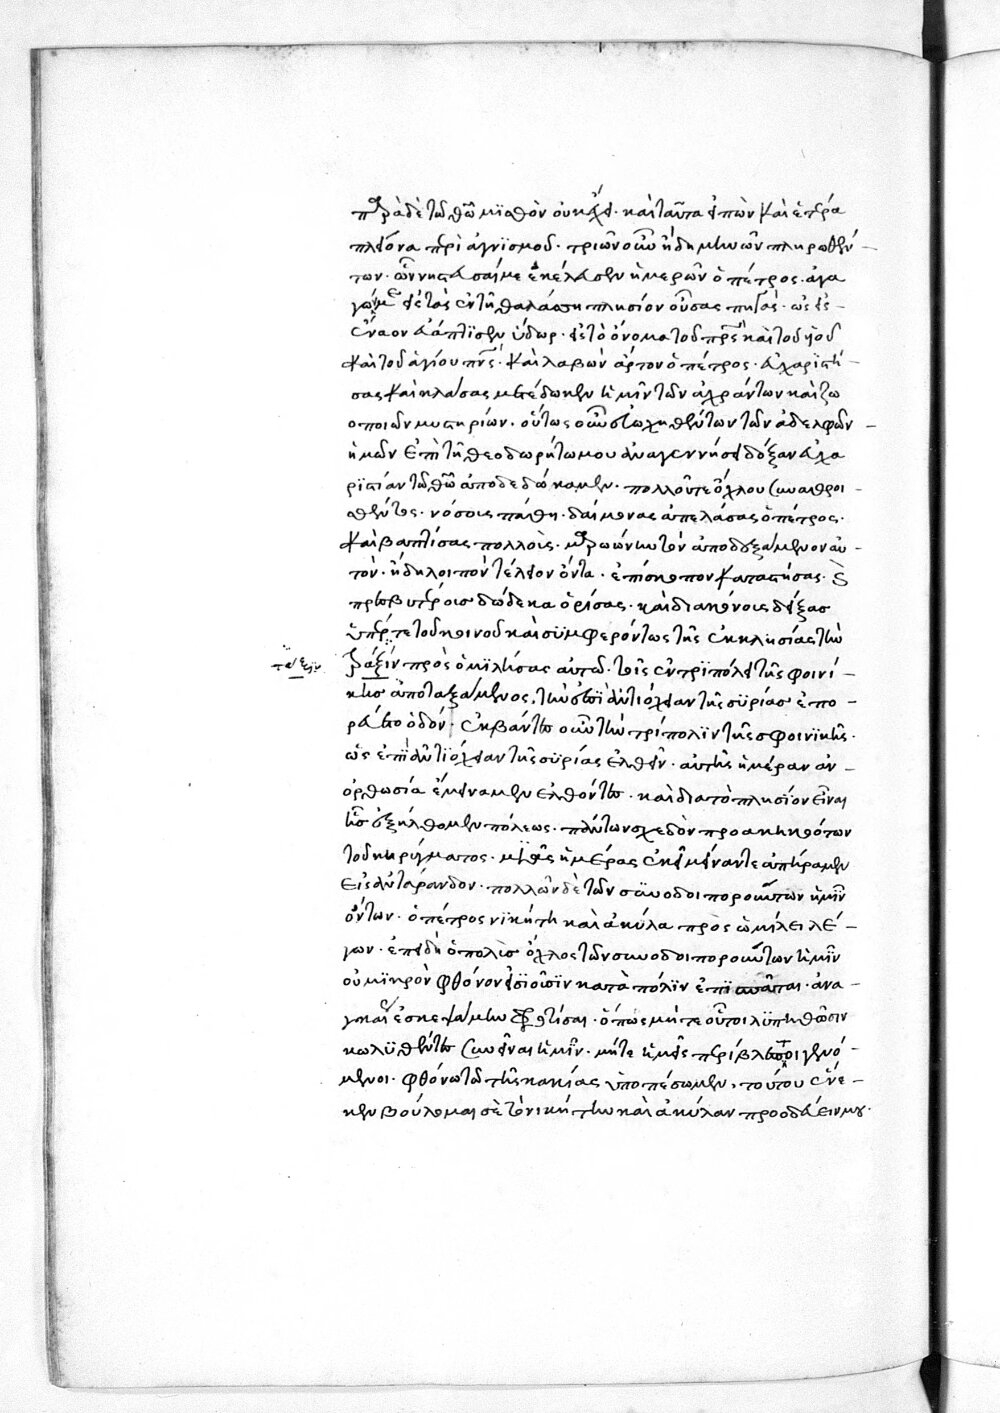 παρὰ δὲ τῶ θῶ μϊσθὸν οὐκ ἔχει· καὶ ταῦτα εἰπὼν καὶ ἑτέρα
πλείονα περὶ ἁγνϊσμοῦ· τριῶν οὖν ἤδη μηνῶν πληρωθέν–
των· νηστεῦσαί με ἐκέλευσεν ἡμερῶν ὁ πέτρος· ἀγα
γών με εἰς τὰς ἐν τῆ θαλάσση πλησίον οὔσας πηγάς· ὡς εἰς–
ἀέναον ἐβάπτϊσεν ὕδωρ· εἰς τὸ ὄνομα τοῦ πρς καὶ τοῦ υἱοῦ
καὶ τοῦ ἁγίου πνς· καὶ λαβὼν ἄρτον ὁ πέτρος· εὐχαρϊστή–
σας καὶ κλάσας μετέδωκεν ἡμῖν τῶν ἀχράντων καὶ ζω
οποιῶν μυστηρίων· οὕτως οὖν εὐωχηθέντων τῶν ἀδελφῶν–
ἡμῶν ἐπὶ τῆ θεοδωρήτω μου ἀναγεννήσει δόξαν εὐχα
ρϊστίαν τῶ θῶ ἀποδεδώκαμεν· πολλοῦ τε ὄχλου συναθροι–
σθέντος· νόσους πάθη· δαίμονας ἀπελάσας ὁ πέτρος·
καὶ βαπτίσας πολλοὺς· μαροώνην τὸν ἀποδεξάμενον αὐ–
τὸν· ἤδη λοιπὸν τέλειον ὄντα· ἐπίσκοπον καταστήσας· καὶ
πρεσβυτέρους δώδεκα ὁρίσας· καὶ διακόνους δείξας
ὑπέρ τε τοῦ κοινοῦ καὶ συμφερόντως τῆς ἐκκλησίας τὴν
τάξϊν τάξϊν προσομϊλήσας αὐτῶ· τοῖς ἐν τρϊπόλει τῆς φοινί–
κης ἀποταξάμενος, τὴν ἐπϊ ἀντιόχειαν τῆς συρίας ἐπο–
ρεύετο ὁδόν· ἐκβάντες οὖν τὴν τρίπολϊν τῆς φοινϊκης·
ὡς ἐπϊ ἀντϊόχειαν τῆς συρίας ἐλθεῖν· αὐτῆς ἡμέραν ἀν–
ορθωσία ἐμείναμεν ἐλθόντες· καὶ διὰ τὸ πλησίον εἶναι
τῆς ἐξήλθομεν πόλεως· πάντων σχεδὸν προακηκοότων
τοῦ κηρύγματος· μϊᾶς ἡμέρας ἐκεῖ μείναντες ἀπήραμεν
εἰς ἀντάρανδον· πολλῶν δὲ τῶν συνοδοιπορούντων ἡμῖν
ὄντων· ὁ πέτρος νϊκήτη καὶ ἀκύλα προσωμίλει λέ–
γων· ἐπειδὴ ὁ πολὺς ὄχλος τῶν συνοδοιπορούντων ἡμῖν
οὐ μϊκρὸν φθόνον εἰσϊοῦσϊν κατὰ πόλϊν ἐπϊσπᾶται· ἀνα–
γκαίως ἐσκεψάμην φροντίσαι· ὅπως μήτε οὗτοι λϋπηθῶσιν
κωλϋθέντες συνεῖναι ἡμῖν· μήτε ἡμεῖς περίβλεπτοι γενό–
μενοι· φθόνω τῶ τῆς κακίας ὑποπέσωμεν, τούτου ἕνε–
κεν βούλομαι σὲ τὸν νικήτην καὶ ἀκύλαν προοδεύειν μου·